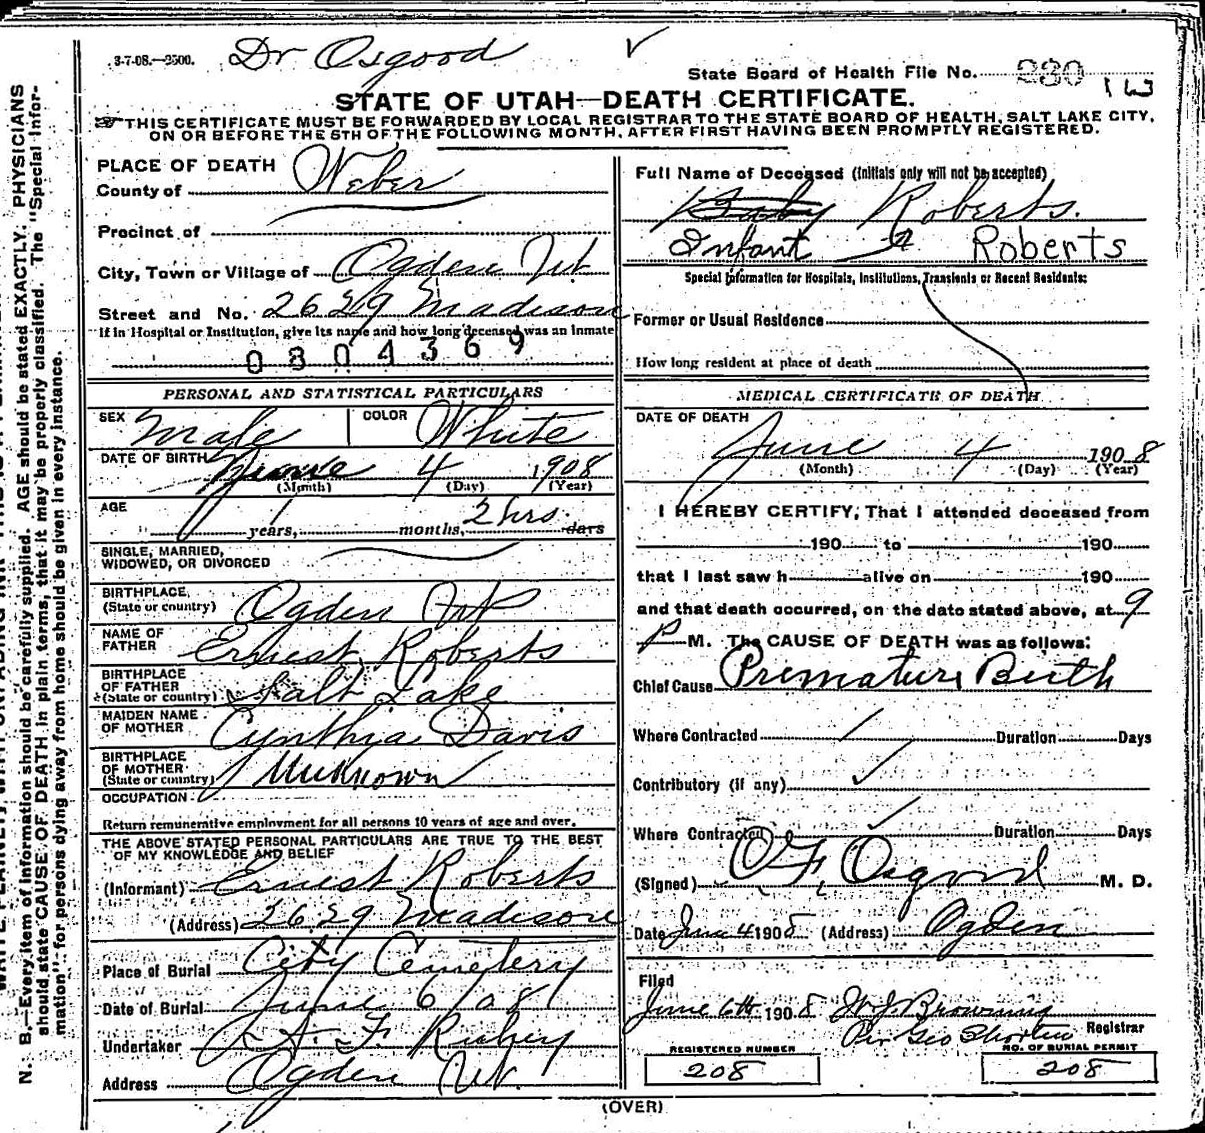 3-7-08.—2500. Dr Osgood
State Board of Health File No. 230 163
STATE OF UTAH—DEATH CERTIFICATE.
THIS CERTIFICATE MUST BE FORWARDED BY LOCAL REGISTRAR TO THE STATE BOARD OF HEALTH, SALT LAKE CITY,
ON OR BEFORE THE 5TH OF THE FOLLOWING MONTH, AFTER FIRST HAVING BEEN PROMPTLY REGISTERED.
PLACE OF DEATH
County of Weber
Precinct of
City, Town or Village of Ogden Ut
Street and No. 2629 Madison
If in Hospital or Institution, give its name and how long deceased was an inmate
0804369
PERSONAL AND STATISTICAL PARTICULARS
SEX Male COLOR White
DATE OF BIRTH June 4 1908
(Month) (Day) (Year)
AGE
years, months, 2 hrs. days
SINGLE, MARRIED,
WIDOWED, OR DIVORCED
BIRTHPLACE
(State or country) Ogden Ut
NAME OF
FATHER Ernest Roberts
BIRTHPLACE
OF FATHER
(State or country) Salt Lake
MAIDEN NAME
OF MOTHER Cynthia Davis
BIRTHPLACE
OF MOTHER
(State or country) Unknown
OCCUPATION
Return remunerative employment for all persons 10 years of age and over.
THE ABOVE STATED PERSONAL PARTICULARS ARE TRUE TO THE BEST
OF MY KNOWLEDGE AND BELIEF
(Informant) Ernest Roberts
(Address) 2629 Madison
Place of Burial City Cemetery
Date of Burial June 6 / 08
Undertaker A. F. Richey
Address Ogden Ut.
Full Name of Deceased (Initials only will not be accepted)
Baby Roberts.
Infant Roberts
Special Information for Hospitals, Institutions, Transients or Recent Residents:
Former or Usual Residence
How long resident at place of death
MEDICAL CERTIFICATE OF DEATH
DATE OF DEATH
June 4 1908
(Month) (Day) (Year)
I HEREBY CERTIFY, That I attended deceased from
190 to 190
that I last saw h alive on 190
and that death occurred, on the date stated above, at 9
P M. The CAUSE OF DEATH was as follows:
Chief Cause Premature Birth
Where Contracted Duration Days
Contributory (if any)
Where Contracted Duration Days
(Signed) O F Osgood M. D.
Date June 4 1908 (Address) Ogden
Filed
June 6th 1908 W J Browning
Per Geo Shorten Registrar
REGISTERED NUMBER NO. OF BURIAL PERMIT
208 208
(OVER)
N. B.—Every item of information should be carefully supplied. AGE should be stated EXACTLY. PHYSICIANS
should state CAUSE OF DEATH in plain terms, that it may be properly classified. The "Special Infor-
mation" for persons dying away from home should be given in every instance.